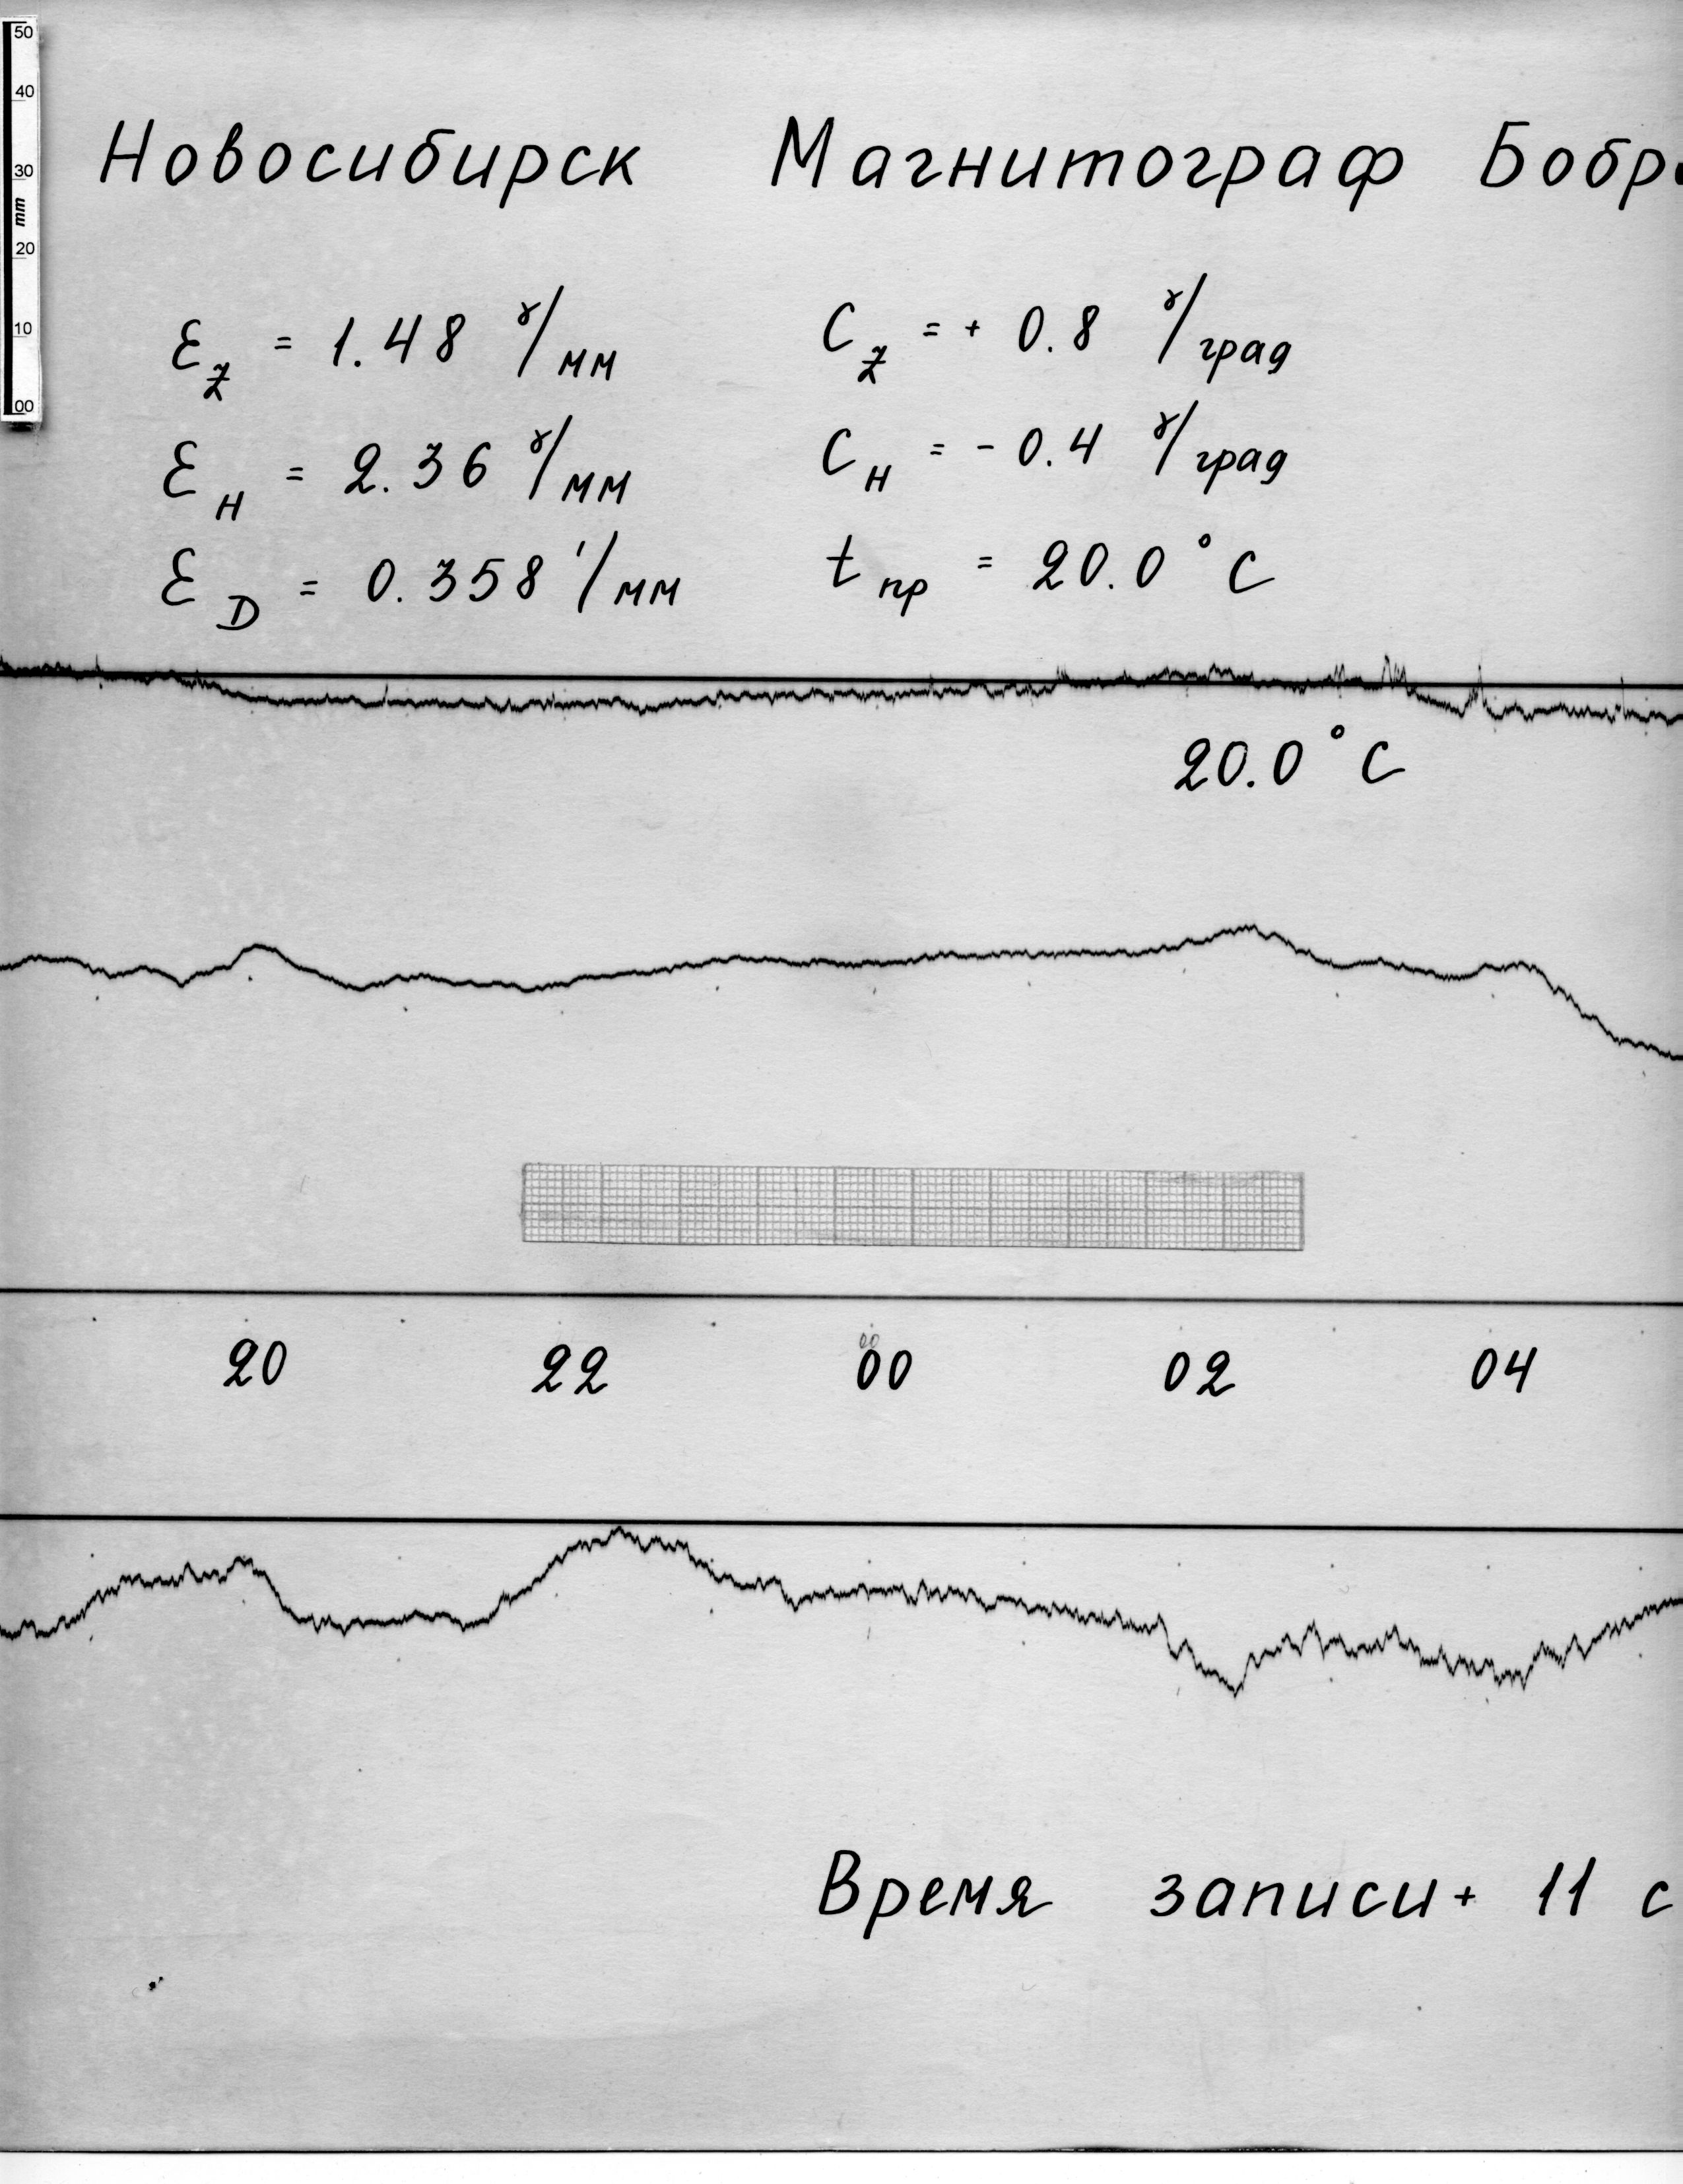 50
40
30
mm
20
10
00
Новосибирск Магнитограф Бобр
Ɛz = 1.48 ɣ/мм Cz = + 0.8 ɣ/град
ƐH = 2.36 ɣ/мм CH = - 0.4 ɣ/град
ƐD = 0.358 '/мм tпр = 20.0 °C
20.0 °C
00
20 22 00 02 04
Время записи + 11 с